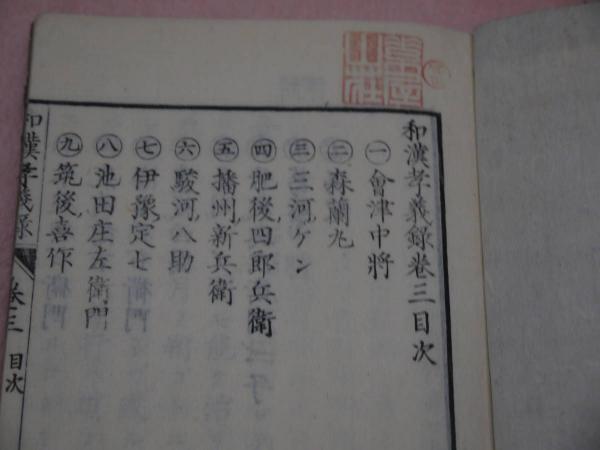 和漢孝義録卷三目次
㊀會津中將
㊁森蘭丸
㊂三河ゲン
㊃肥後四郎兵衛
㊄播州新兵衛
㊅駿河八助
㊆伊豫定七
㊇池田庄左衛門
㊈筑後喜作
和漢孝義録 卷三 目次